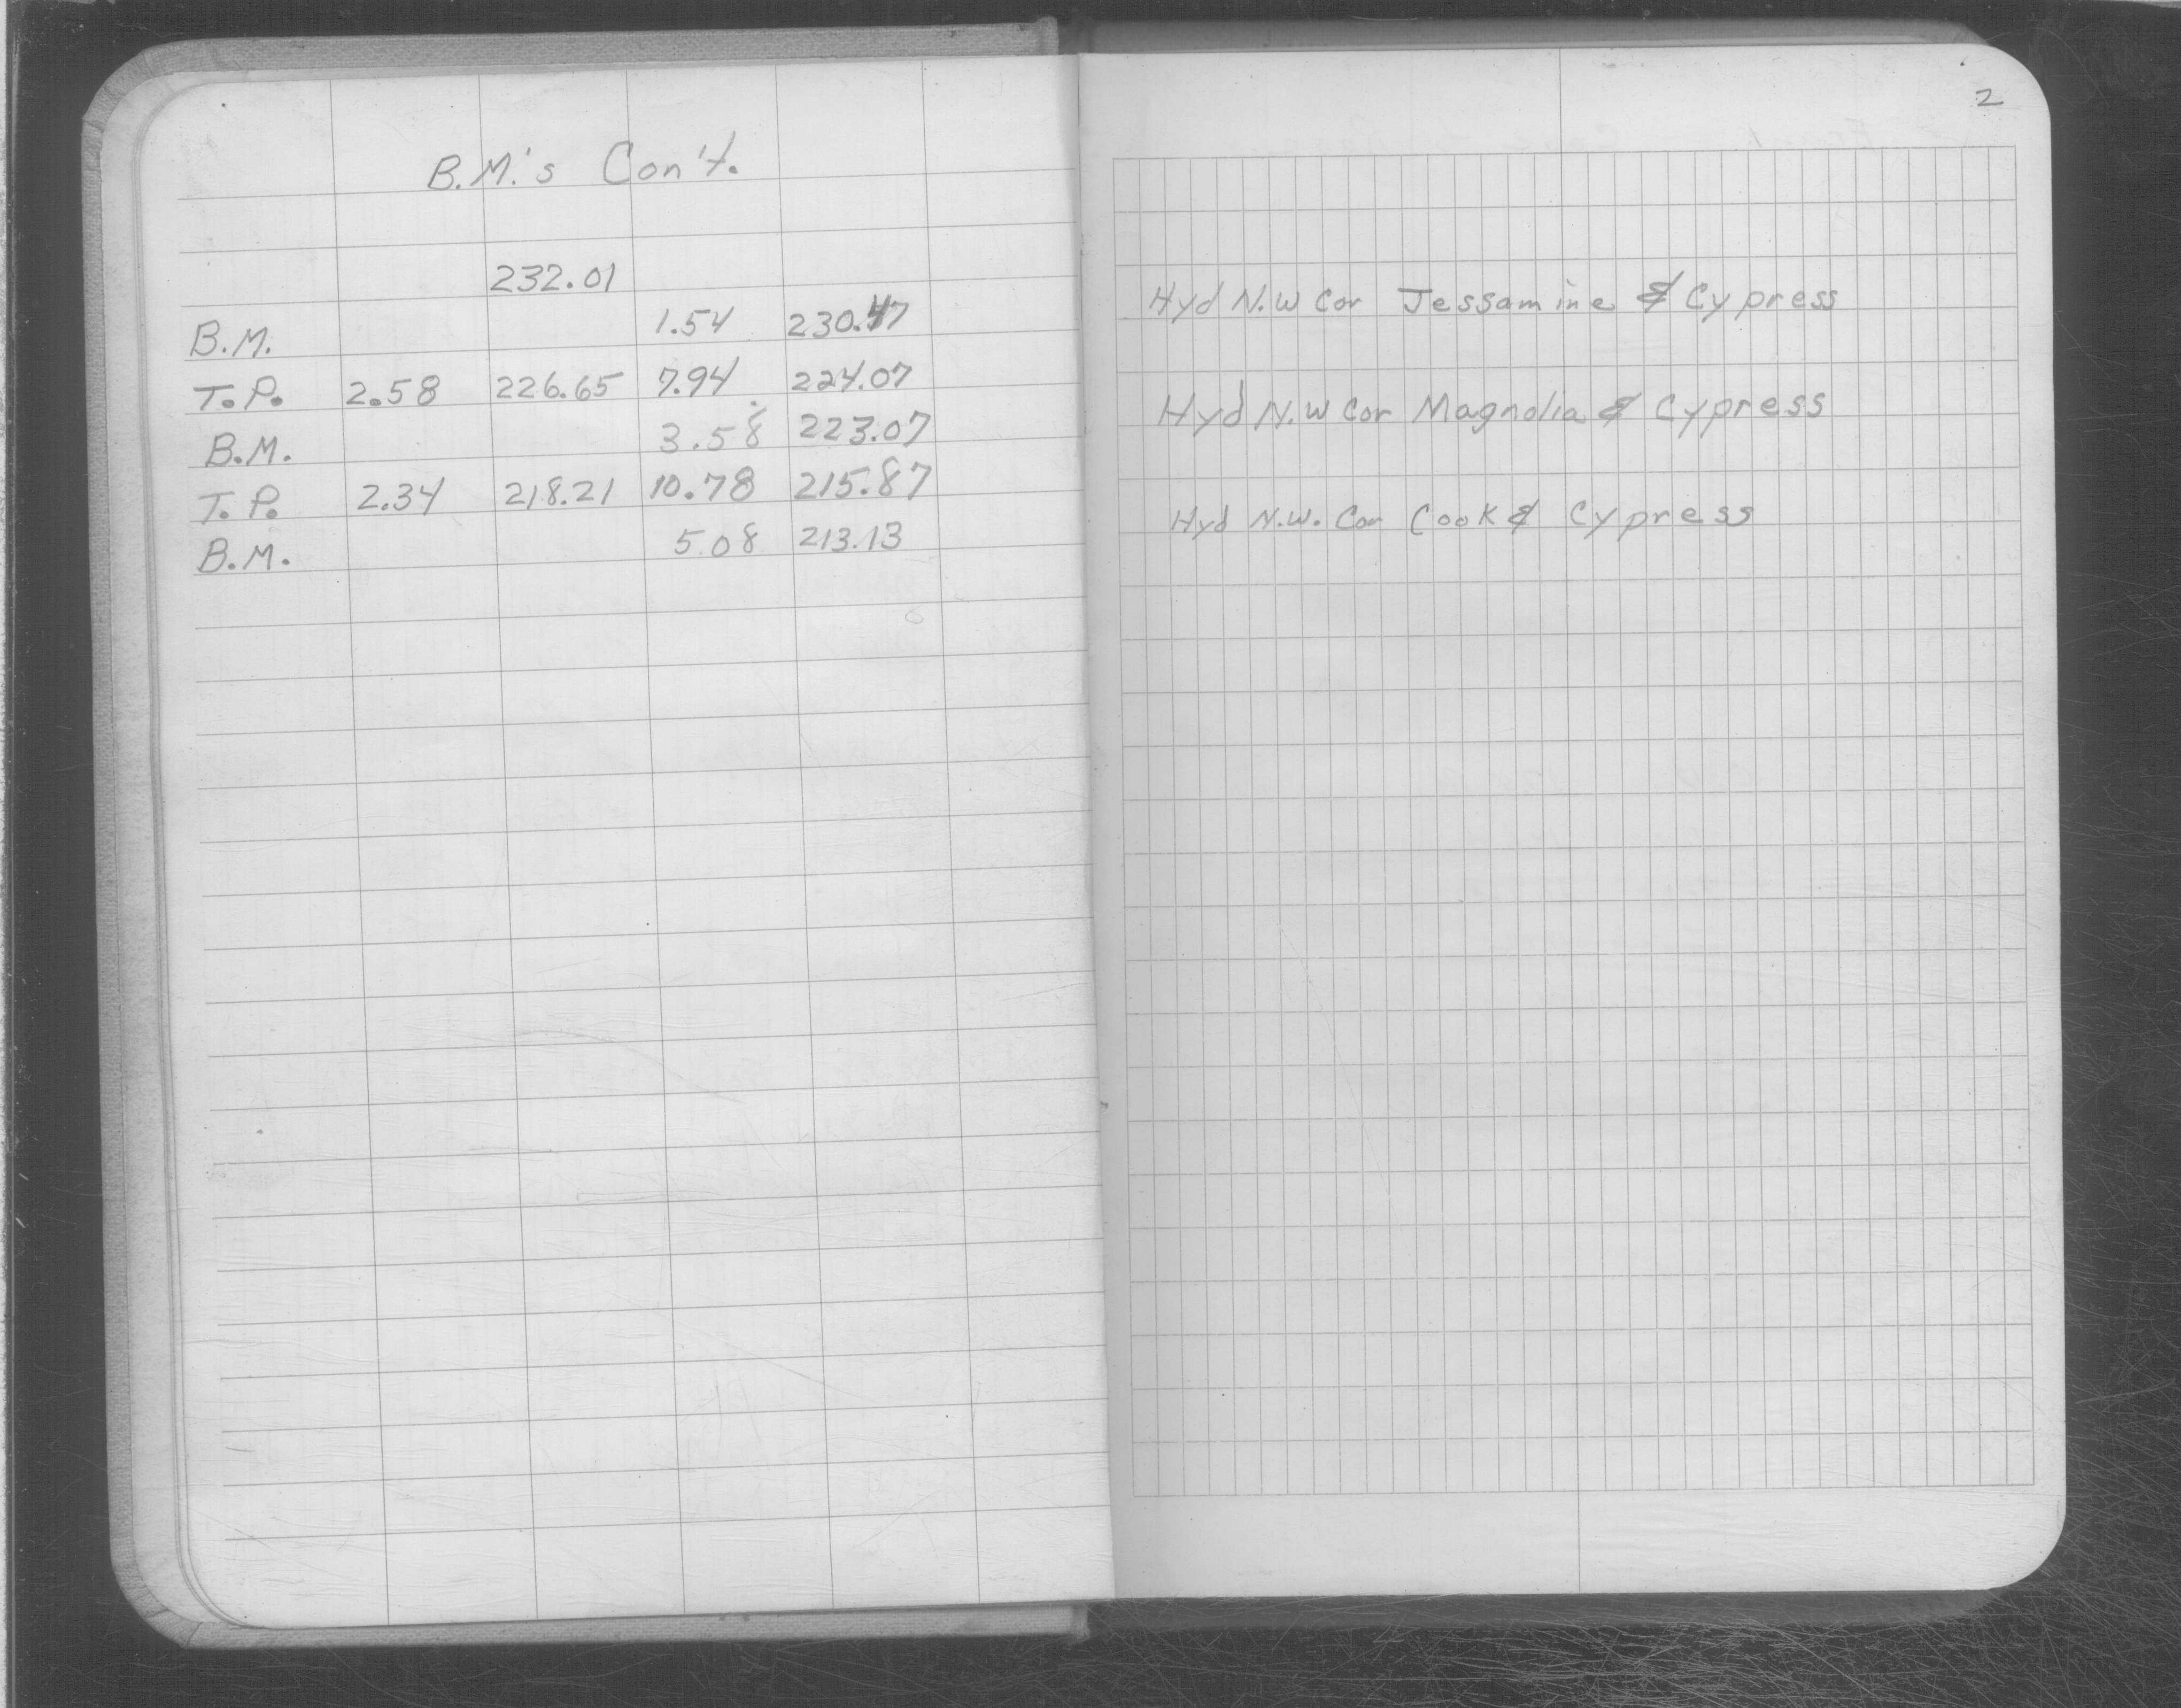 B.M.'s Con't.
232.01
B.M. 1.54 230.47
T.P. 2.58 226.65 7.94 224.07
B.M. 3.58 223.07
T.P. 2.34 218.21 10.78 215.87
B.M. 5.08 213.13
2
Hyd N.W Cor Jessamine & Cypress
Hyd N.W Cor Magnolia & Cypress
Hyd N.W. Cor Cook & Cypress